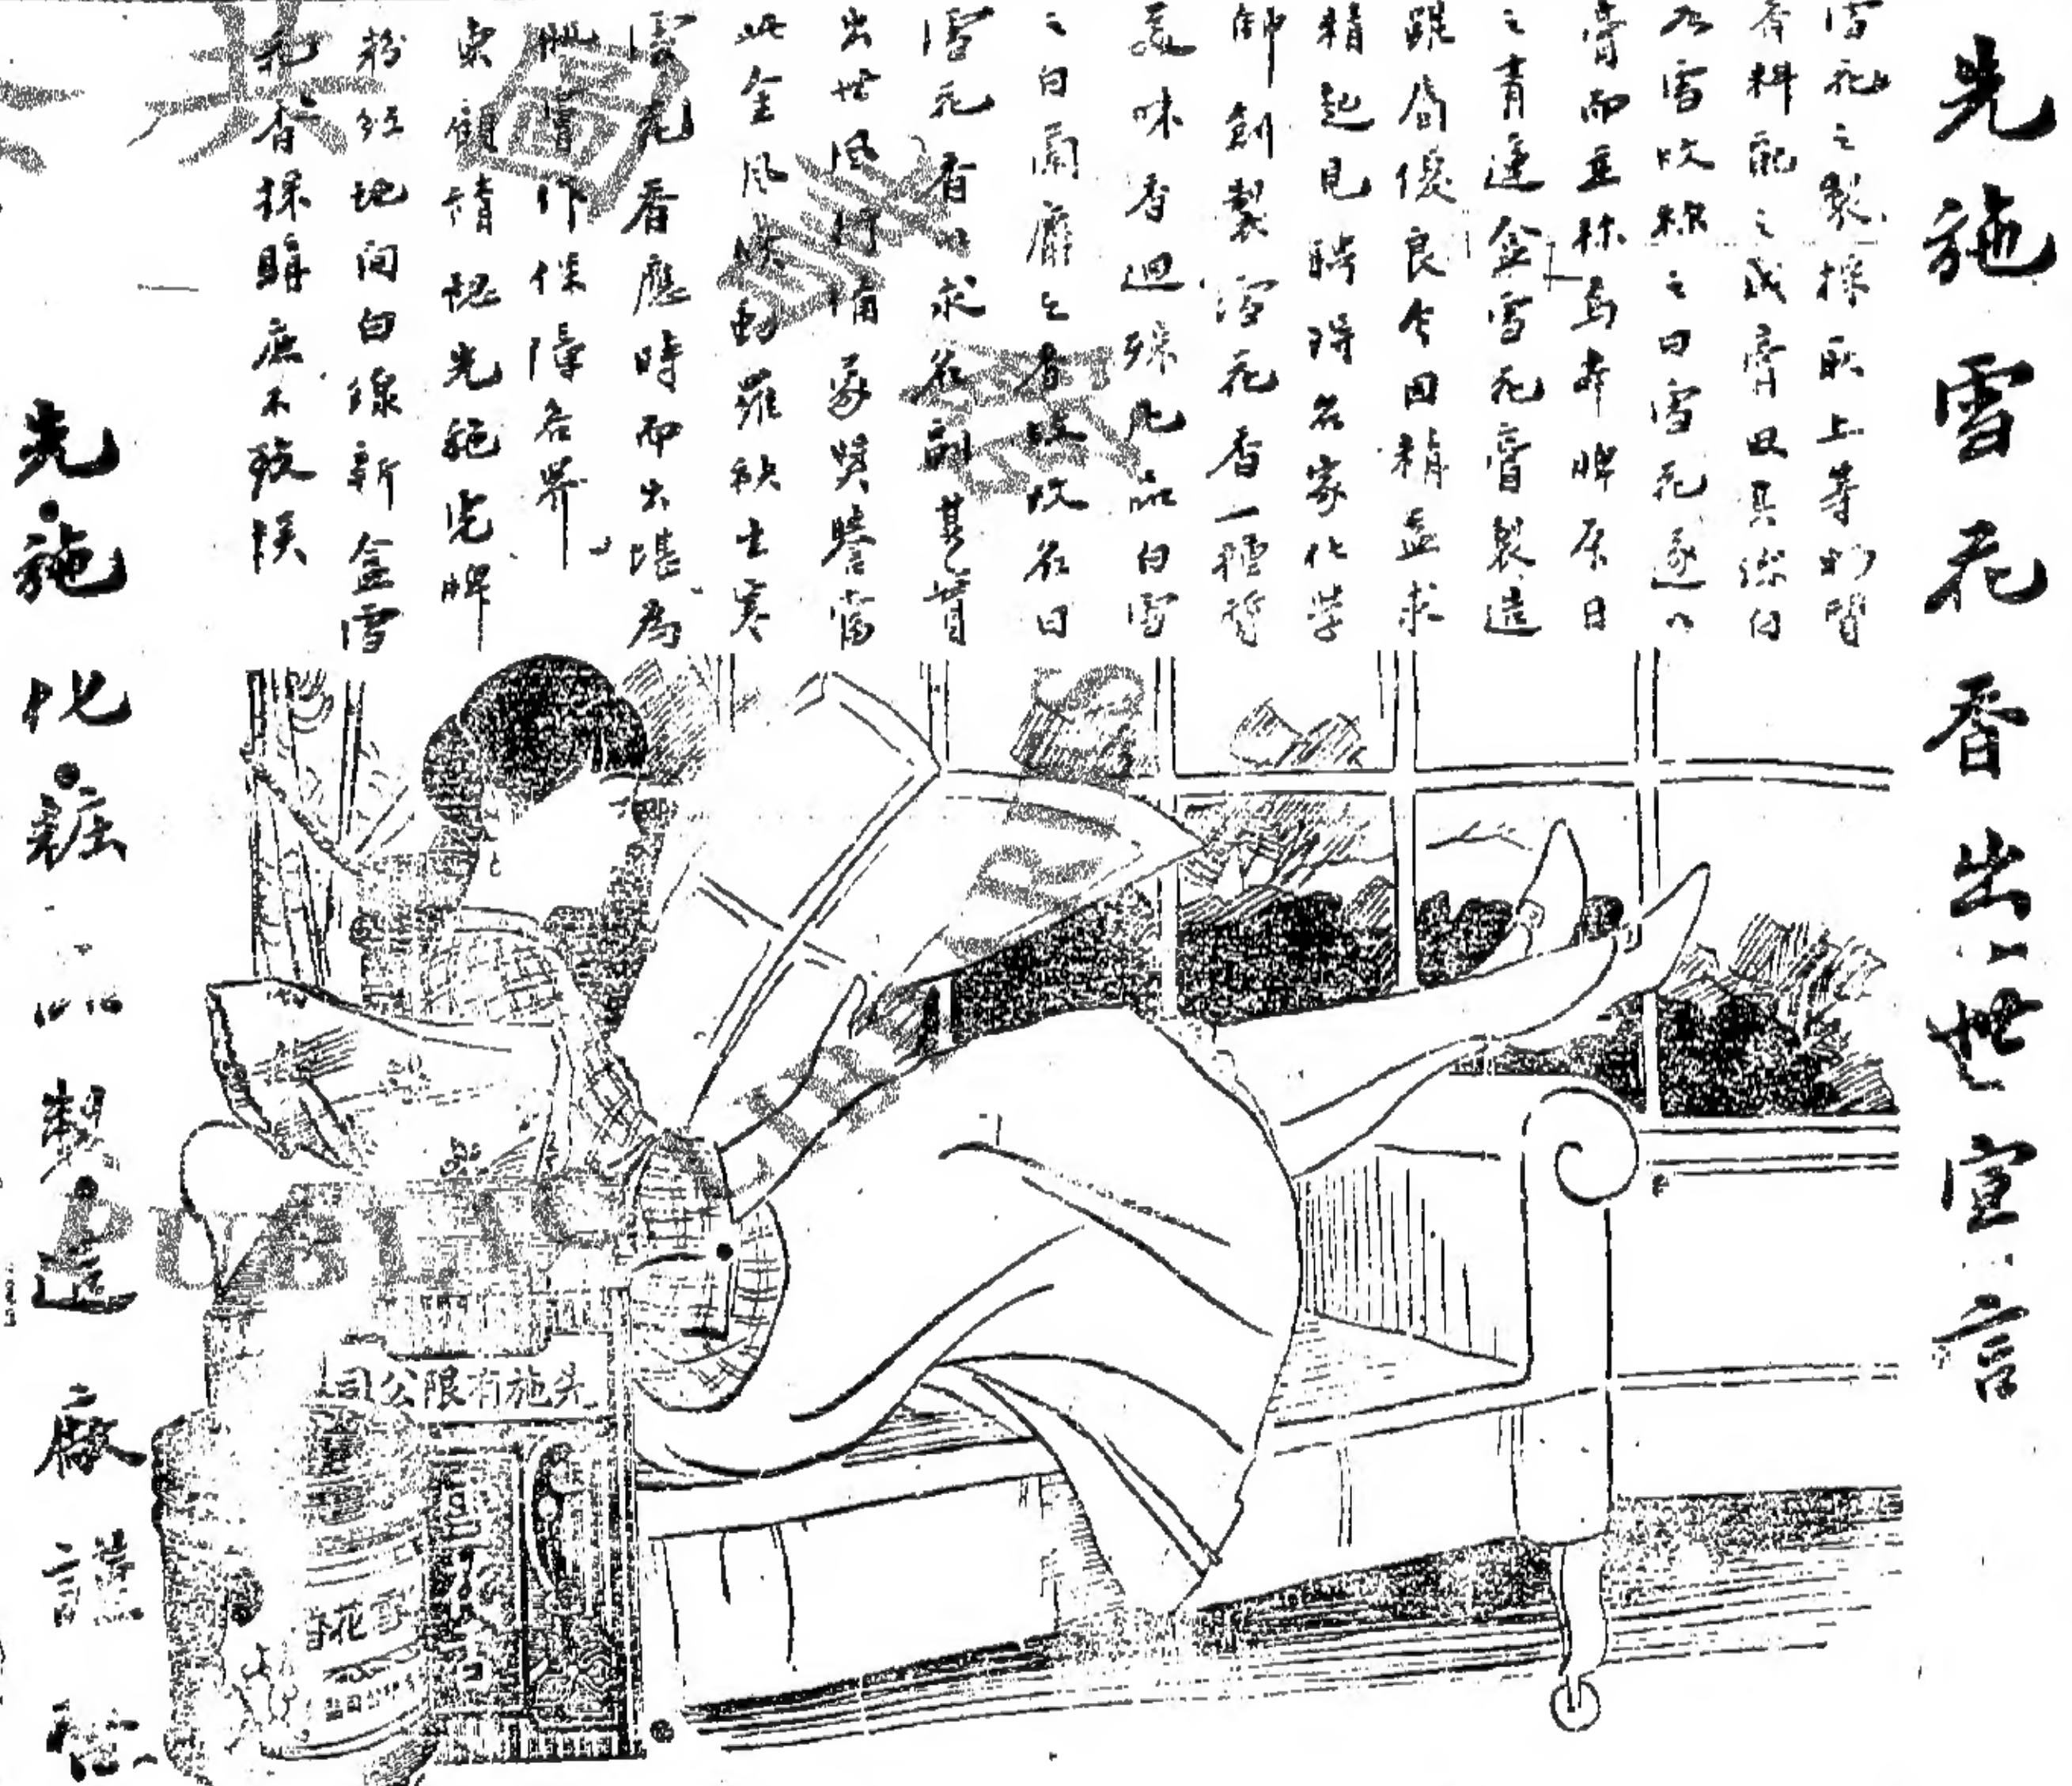 先施雪花香出世宣言
雪花之製採取上等的質
香料配之成膏因其深白
如雪故稱之曰雪花逐以
膏而並稱焉本牌原日
之青蓮盒雪花膏製造
既屬優良今因精益求
精起見聘得名家化學
師創製雪花香一種質
美味香迥殊凡品白雪
之白蘭麝之香故名曰
雪花香以求名副其實
出世風行備蒙獎譽當
此金風吹動羅袂生寒
雪花香應時而出堪為
肌膚作保障各界
東顧請認先施虎牌
粉紅地間白線新盒雪
花香採購庶不致誤
先施化粧品製造廠謹啓
先施有限公司
雪花香
PUBLIC